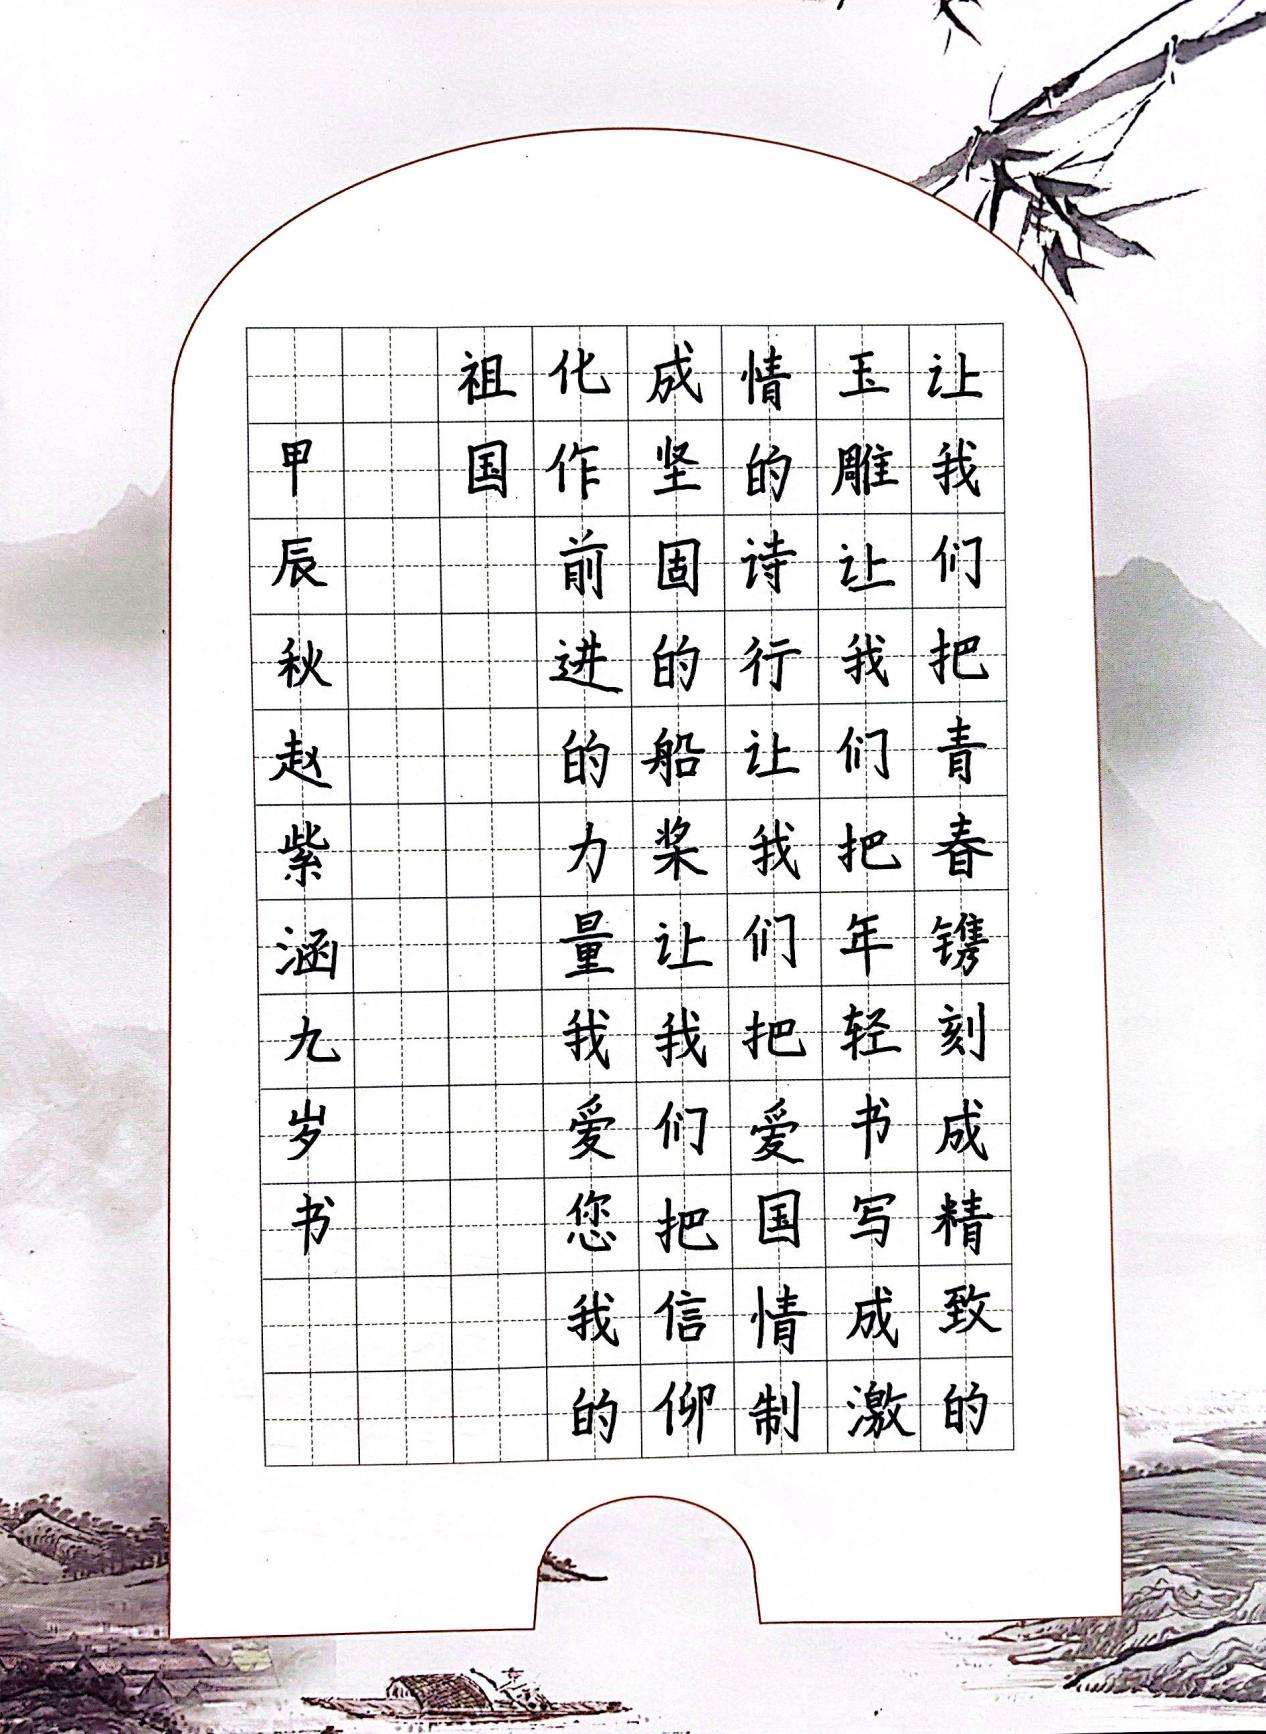 让我们把青春镌刻成精致的
玉雕让我们把年轻书写成激
情的诗行让我们把爱国情制
成坚固的船桨让我们把信仰
化作前进的力量我爱您我的
祖国
甲辰秋赵紫涵九岁书